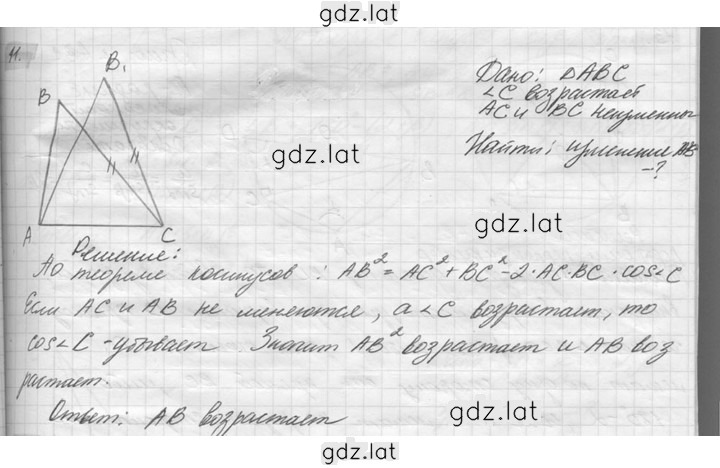 gdz.lat
11.
B₁
B
A
C
Дано: △ABC
∠C возрастает
AC и BC неизменны
gdz.lat
Найти: изменение AB
-?
gdz.lat
Решение:
По теореме косинусов: AB² = AC² + BC² - 2·AC·BC·cos∠C
Если AC и AB не меняются, а ∠C возрастает, то
cos∠C - убывает. Значит AB² возрастает и AB воз
растает.
Ответ: AB возрастает
gdz.lat
gdz.lat